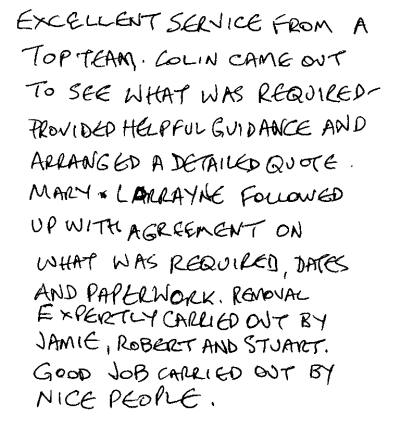 EXCELLENT SERVICE FROM A
TOP TEAM. COLIN CAME OUT
TO SEE WHAT WAS REQUIRED-
PROVIDED HELPFUL GUIDANCE AND
ARRANGED A DETAILED QUOTE.
MARY & LARRAYNE FOLLOWED
UP WITH AGREEMENT ON
WHAT WAS REQUIRED, DATES
AND PAPERWORK. REMOVAL
EXPERTLY CARRIED OUT BY
JAMIE, ROBERT AND STUART.
GOOD JOB CARRIED OUT BY
NICE PEOPLE.